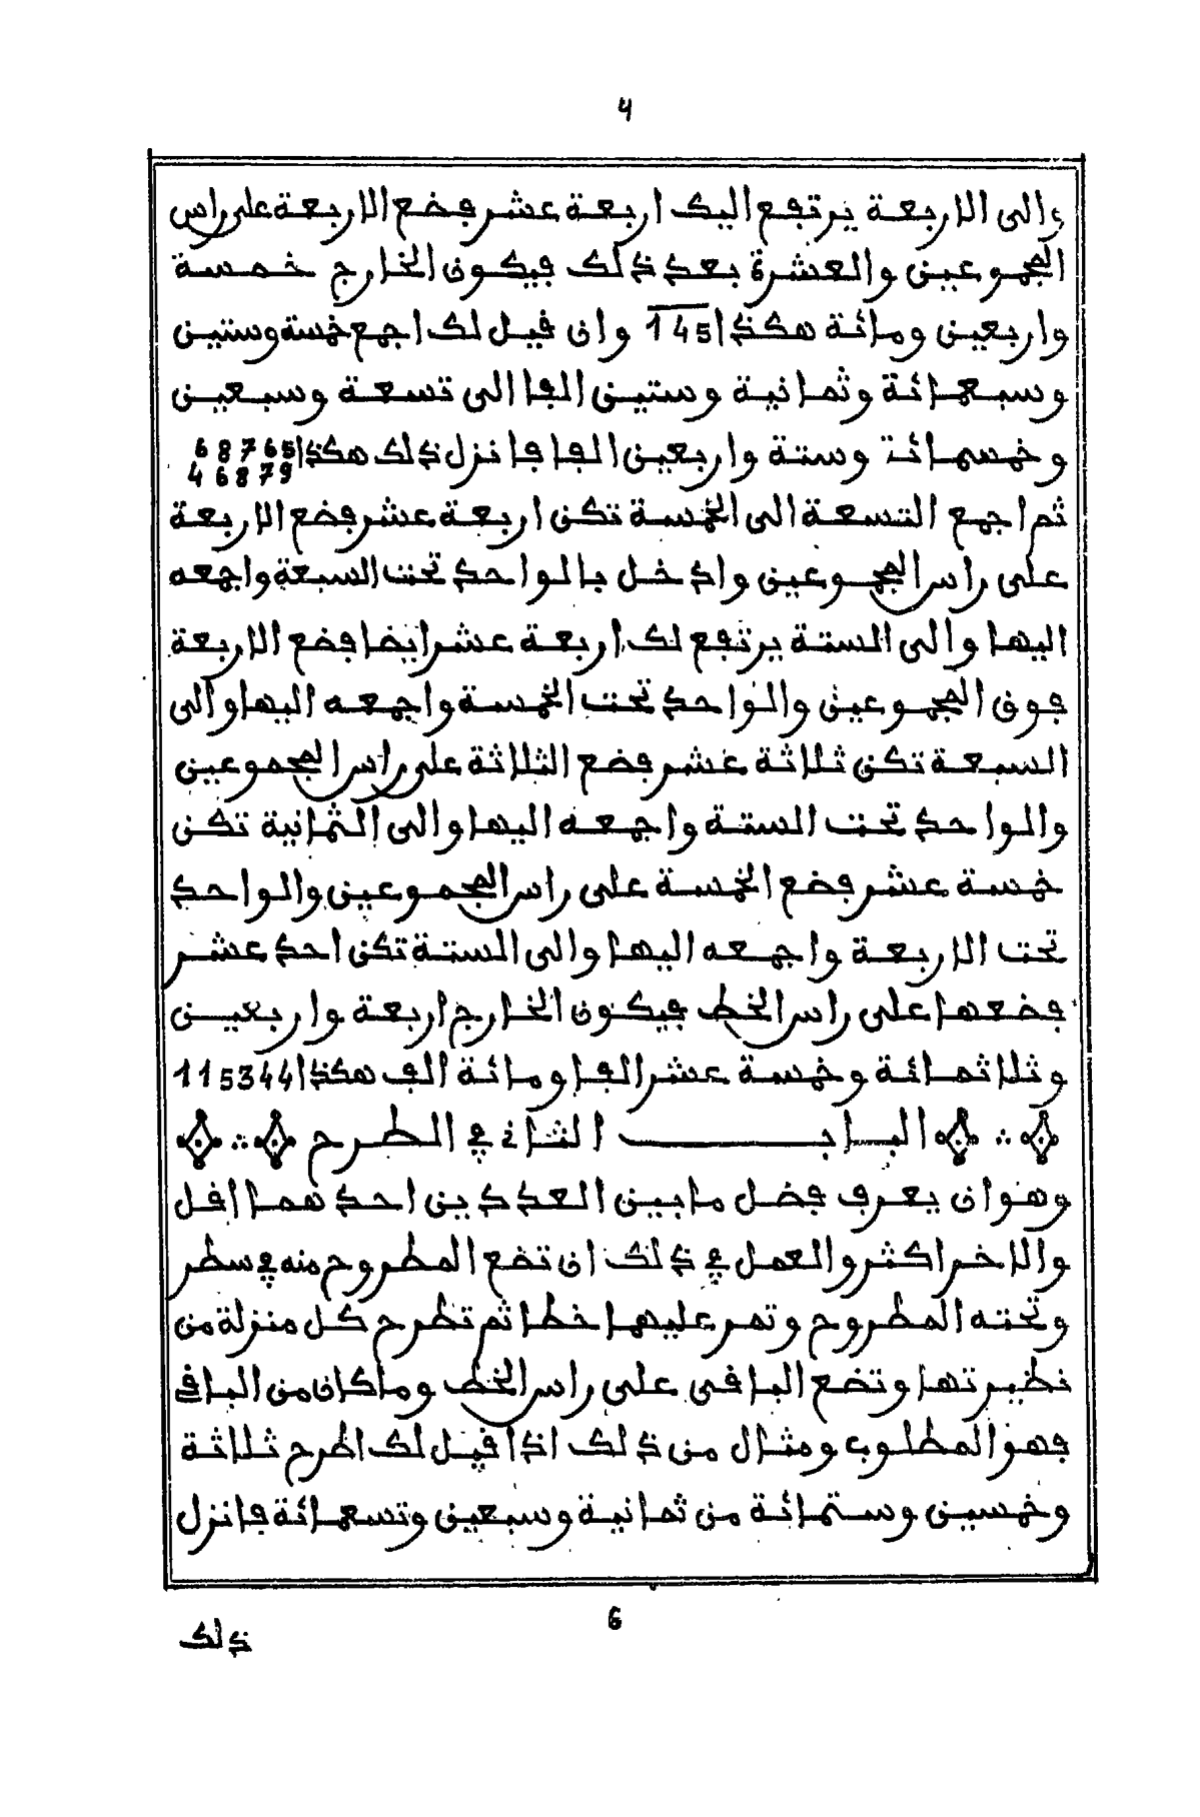 4
والى الاربعة يرتفع اليك اربعة عشر فضع الاربعة على راس
المجموعين والعشرة بعد ذلك فيكون الخارج خمسة
واربعين ومائة هكذا 145 وان قيل لك اجمع خمسة وستين
وسبعمائة وثمانية وستين الفا الى تسعة وسبعين
وخمسمائة وستة واربعين الفا فانزل ذلك هكذا 68765
46879
ثم اجمع التسعة الى الخمسة تكن اربعة عشر فضع الاربعة
على راس المجموعين وادخل بالواحد تحت السبعة واجمعه
اليها والى الستة يرتفع لك اربعة عشر ايضا فضع الاربعة
فوق المجموعين والواحد تحت الخمسة واجمعه اليها والى
السبعة تكن ثلاثة عشر فضع الثلاثة على راس المجموعين
والواحد تحت الستة واجمعه اليها والى الثمانية تكن
خمسة عشر فضع الخمسة على راس المجموعين والواحد
تحت الاربعة واجمعه اليها والى الستة تكن احد عشر
فضعها على راس الخط فيكون الخارج اربعة واربعين
وثلاثمائة وخمسة عشر الفا ومائة الف هكذا 115344
الباب الثاني في الطرح
وهو ان يعرف فضل ما بين العددين احدهما اقل
والاخر اكثر والعمل في ذلك ان تضع المطروح منه في سطر
وتحته المطروح وتمر عليها خطا ثم تطرح كل منزلة من
نظيرتها وتضع الباقى على راس الخط وما كان من الباقي
فهو المطلوب ومثال من ذلك اذا قيل لك اطرح ثلاثة
وخمسين وستمائة من ثمانية وسبعين وتسعمائة فانزل
6
ذلك